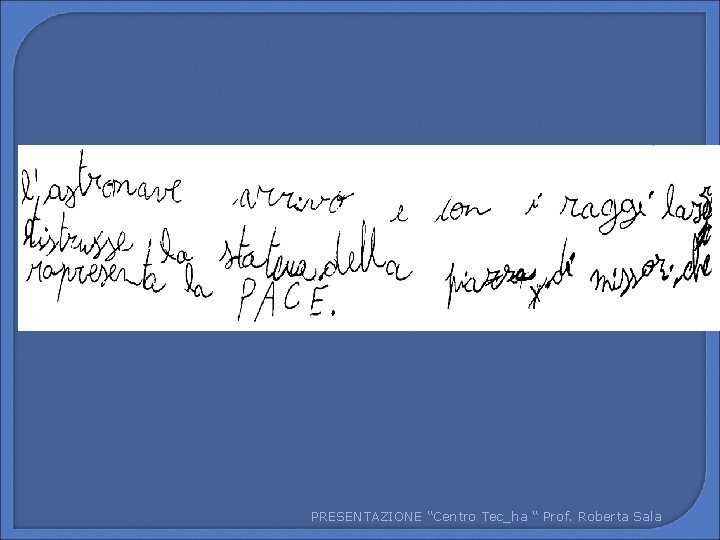 l'astronave arrivò e con i raggi laser
distrusse la statua della piazza di missori che
rapresenta la PACE.
PRESENTAZIONE “Centro Tec_ha “ Prof. Roberta Sala